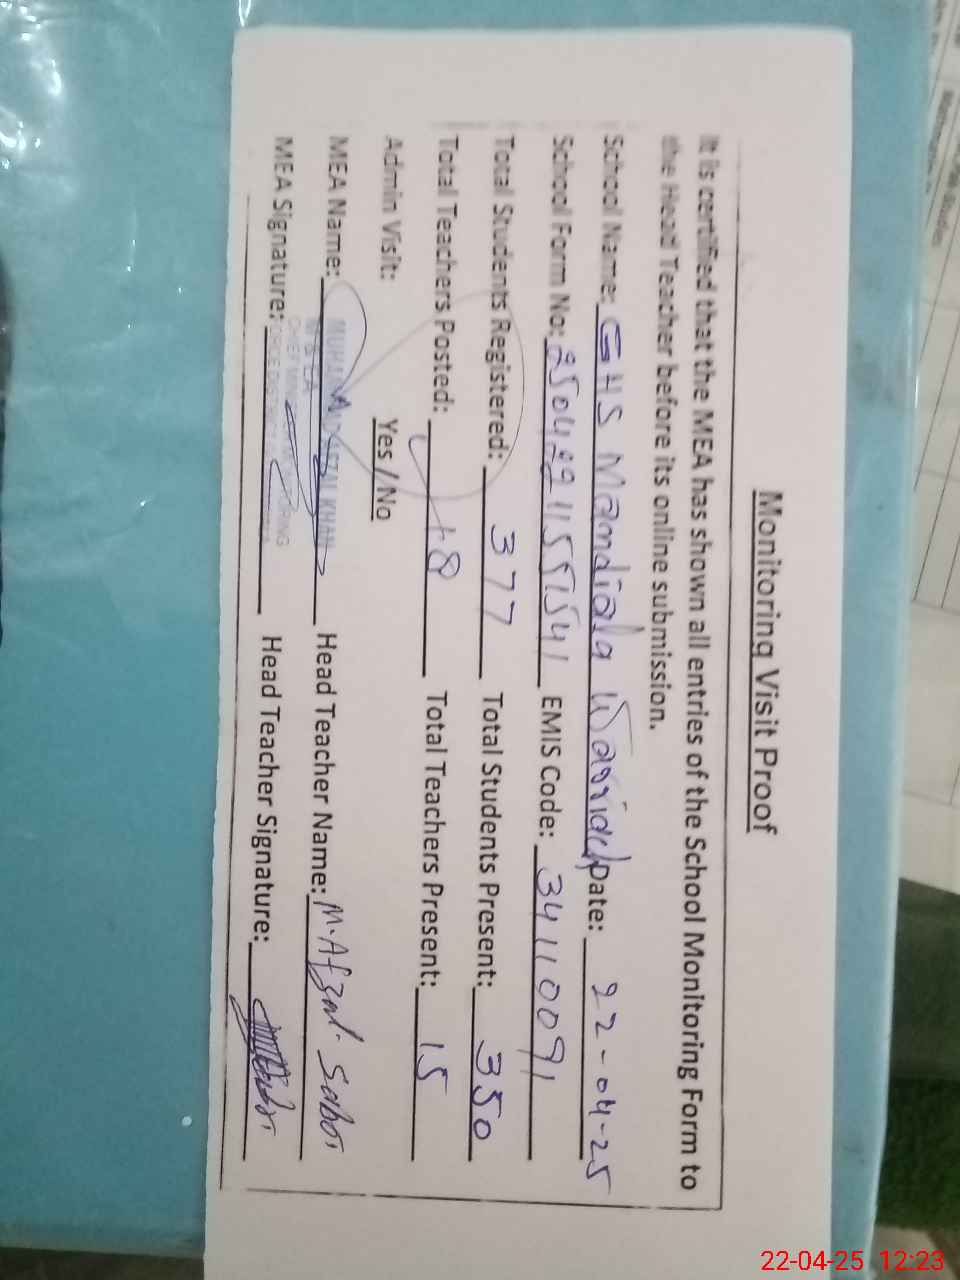 Monitoring Visit Proof
It is certified that the MEA has shown all entries of the School Monitoring Form to
the Head Teacher before its online submission.
School Name: GHS Mandiala Warriach Date: 22-04-25
School Form No: EMIS Code: 34110091
Total Students Registered: 377 Total Students Present: 350
Total Teachers Posted: 18 Total Teachers Present: 15
Admin Visit: Yes / No
MEA Name: MUHAMMAD AFZAL KHAN Head Teacher Name: M. Afzal
M & EA
MEA Signature: Head Teacher Signature:
22-04-25 12:23